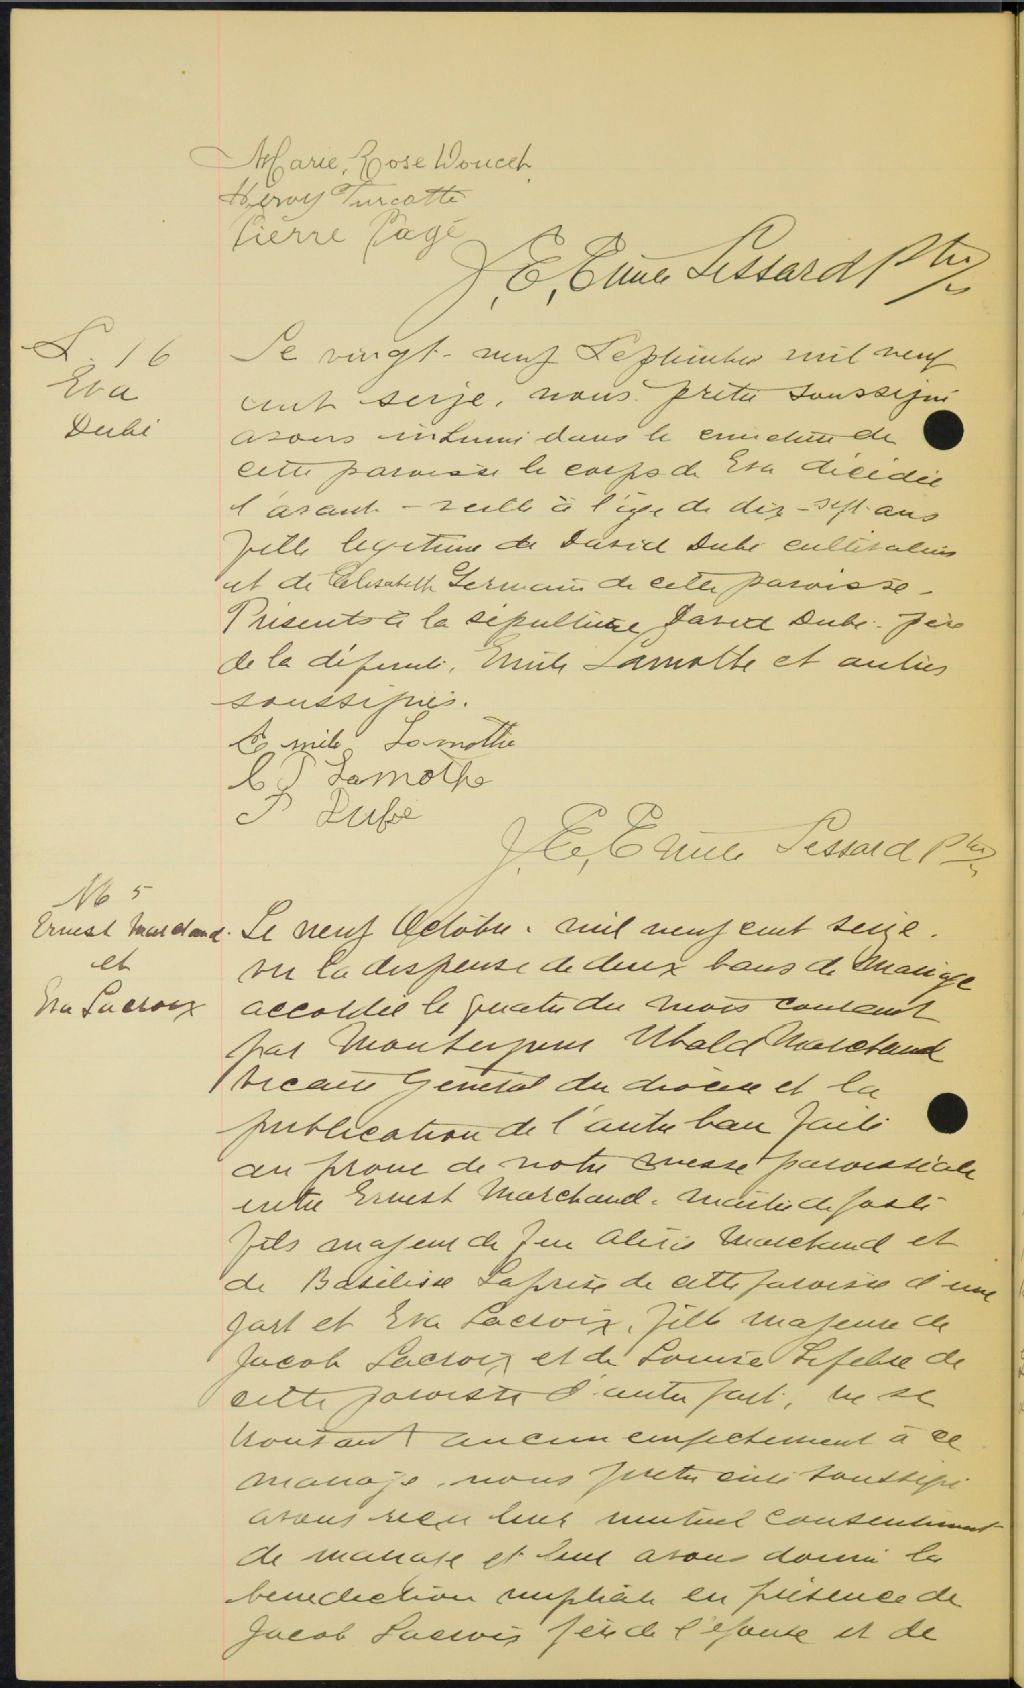 Marie, Rose Doucet
Hervey Turcotte
Pierre Pagé
J. E. Emile Lessard Ptre
S. 16
Eva
Dubé
Le vingt-neuf Septembre mil neuf
cent seize, nous prêtre soussigné
avons inhumé dans le cimetière de
cette paroisse le corps de Eva décédée
l'avant-veille à l'âge de dix-sept ans
fille légitime de David Dubé cultivateur
et de Elisabeth Germain de cette paroisse.
Présents à la sépulture David Dubé père
de la défunte, Emile Lamothe et autres
soussignés.
Emile Lamothe
C P Lamothe
P Dubé
J. E. Emile Lessard Ptre
M 5
Ernest Marchand
et
Eva Lacroix
Le neuf Octobre mil neuf cent seize.
vu la dispense de deux bans de mariage
accordée le quatre du mois courant
par Monseigneur Ubald Marchand
Vicaire Général du diocèse et la
publication de l'autre ban faite
au prone de notre messe paroissiale
entre Ernest Marchand, maitre de poste
fils majeur de feu Marchand et
de Basilisse Laprise de cette paroisse d'une
part et Eva Lacroix, fille majeure de
Jacob Lacroix et de Louise Lefebvre de
cette paroisse d'autre part, ne se
trouvant aucun empêchement à ce
mariage, nous prêtre curé soussigné
avons reçu leur mutuel consentement
de mariage et leur avons donné la
bénédiction nuptiale en présence de
Jacob Lacroix père de l'épouse et de